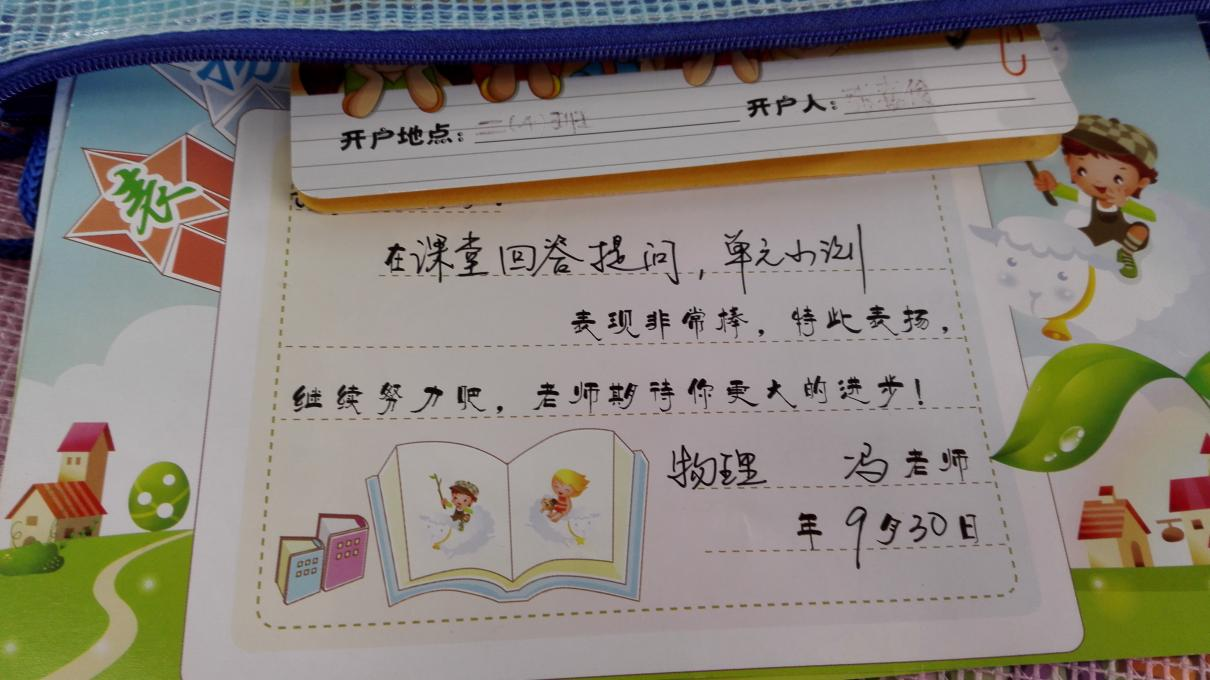 扬
开户地点：二（4）班
开户人：
表
在课堂回答提问，单元小测
表现非常棒，特此表扬，
继续努力吧，老师期待你更大的进步！
物理 冯老师
年9月30日